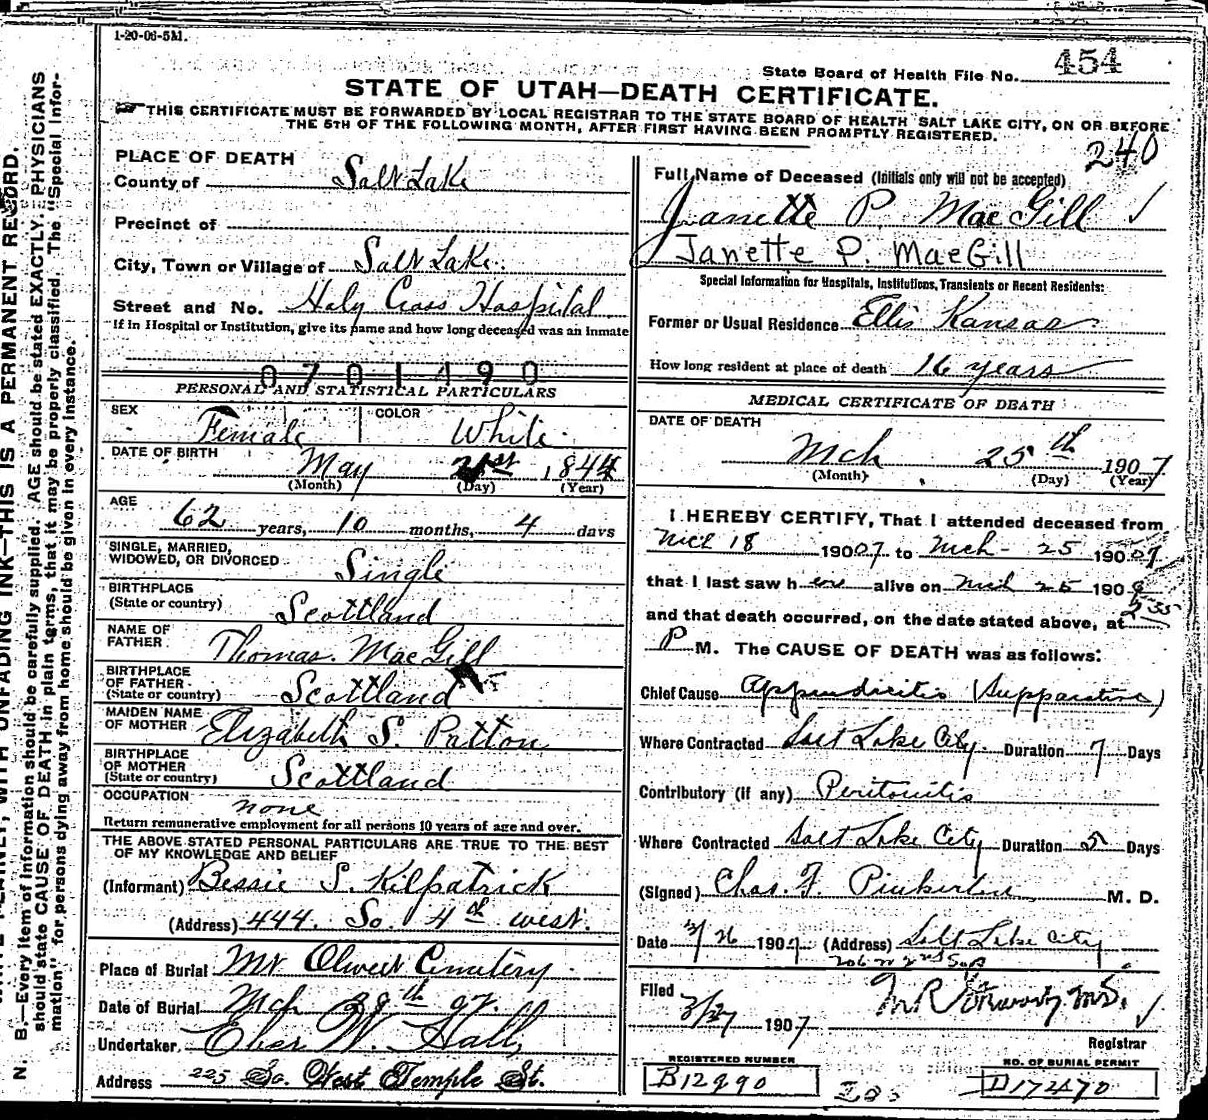 1-20-06-5M.
State Board of Health File No. 454
STATE OF UTAH—DEATH CERTIFICATE.
THIS CERTIFICATE MUST BE FORWARDED BY LOCAL REGISTRAR TO THE STATE BOARD OF HEALTH SALT LAKE CITY, ON OR BEFORE
THE 5TH OF THE FOLLOWING MONTH, AFTER FIRST HAVING BEEN PROMPTLY REGISTERED.
240
PLACE OF DEATH
County of Salt Lake
Precinct of
City, Town or Village of Salt Lake.
Street and No. Holy Cross Hospital
If in Hospital or Institution, give its name and how long deceased was an Inmate
0701490
PERSONAL AND STATISTICAL PARTICULARS
SEX Female COLOR White
DATE OF BIRTH May 21st 1844
(Month) (Day) (Year)
AGE 62 years, 10 months, 4 days
SINGLE, MARRIED,
WIDOWED, OR DIVORCED Single
BIRTHPLACE
(State or country) Scottland
NAME OF
FATHER Thomas MacGill
BIRTHPLACE
OF FATHER
(State or country) Scottland
MAIDEN NAME
OF MOTHER Elizabeth S. Patton
BIRTHPLACE
OF MOTHER
(State or country) Scottland
OCCUPATION none
Return remunerative employment for all persons 10 years of age and over.
THE ABOVE STATED PERSONAL PARTICULARS ARE TRUE TO THE BEST
OF MY KNOWLEDGE AND BELIEF
(Informant) Bessie S. Kilpatrick
(Address) 444. So. 4th west.
Place of Burial Mt Olivet Cemetery
Date of Burial Mch 28th 07.
Undertaker Eber W. Hall
Address 225 So. West Temple St.
Full Name of Deceased (Initials only will not be accepted)
Janette P. MacGill
Janette P. MaeGill
Special Information for Hospitals, Institutions, Transients or Recent Residents:
Former or Usual Residence Ellis Kansas
How long resident at place of death 16 years
MEDICAL CERTIFICATE OF DEATH
DATE OF DEATH
Mch 25th 1907
(Month) (Day) (Year)
I HEREBY CERTIFY, That I attended deceased from
Mch 18 19007 to Mch - 25 19007
that I last saw h er alive on Mch 25 190
and that death occurred, on the date stated above, at 2 35
P M. The CAUSE OF DEATH was as follows:
Chief Cause Appendicitis (Suppurative)
Where Contracted Salt Lake City Duration 7 Days
Contributory (if any) Peritonitis
Where Contracted Salt Lake City Duration 5 Days
(Signed) Chas. F. Pinkerton M. D.
Date 3/26 1907 (Address) Salt Lake City
Filed 3/27 1907
Registrar
REGISTERED NUMBER
B12990
NO. OF BURIAL PERMIT
D17470
N. B.—Every item of information should be carefully supplied. AGE should be stated EXACTLY. PHYSICIANS
should state CAUSE OF DEATH in plain terms, that it may be properly classified. The "Special Infor-
mation" for persons dying away from home should be given in every instance.
WITH UNFADING INK—THIS IS A PERMANENT RECORD.